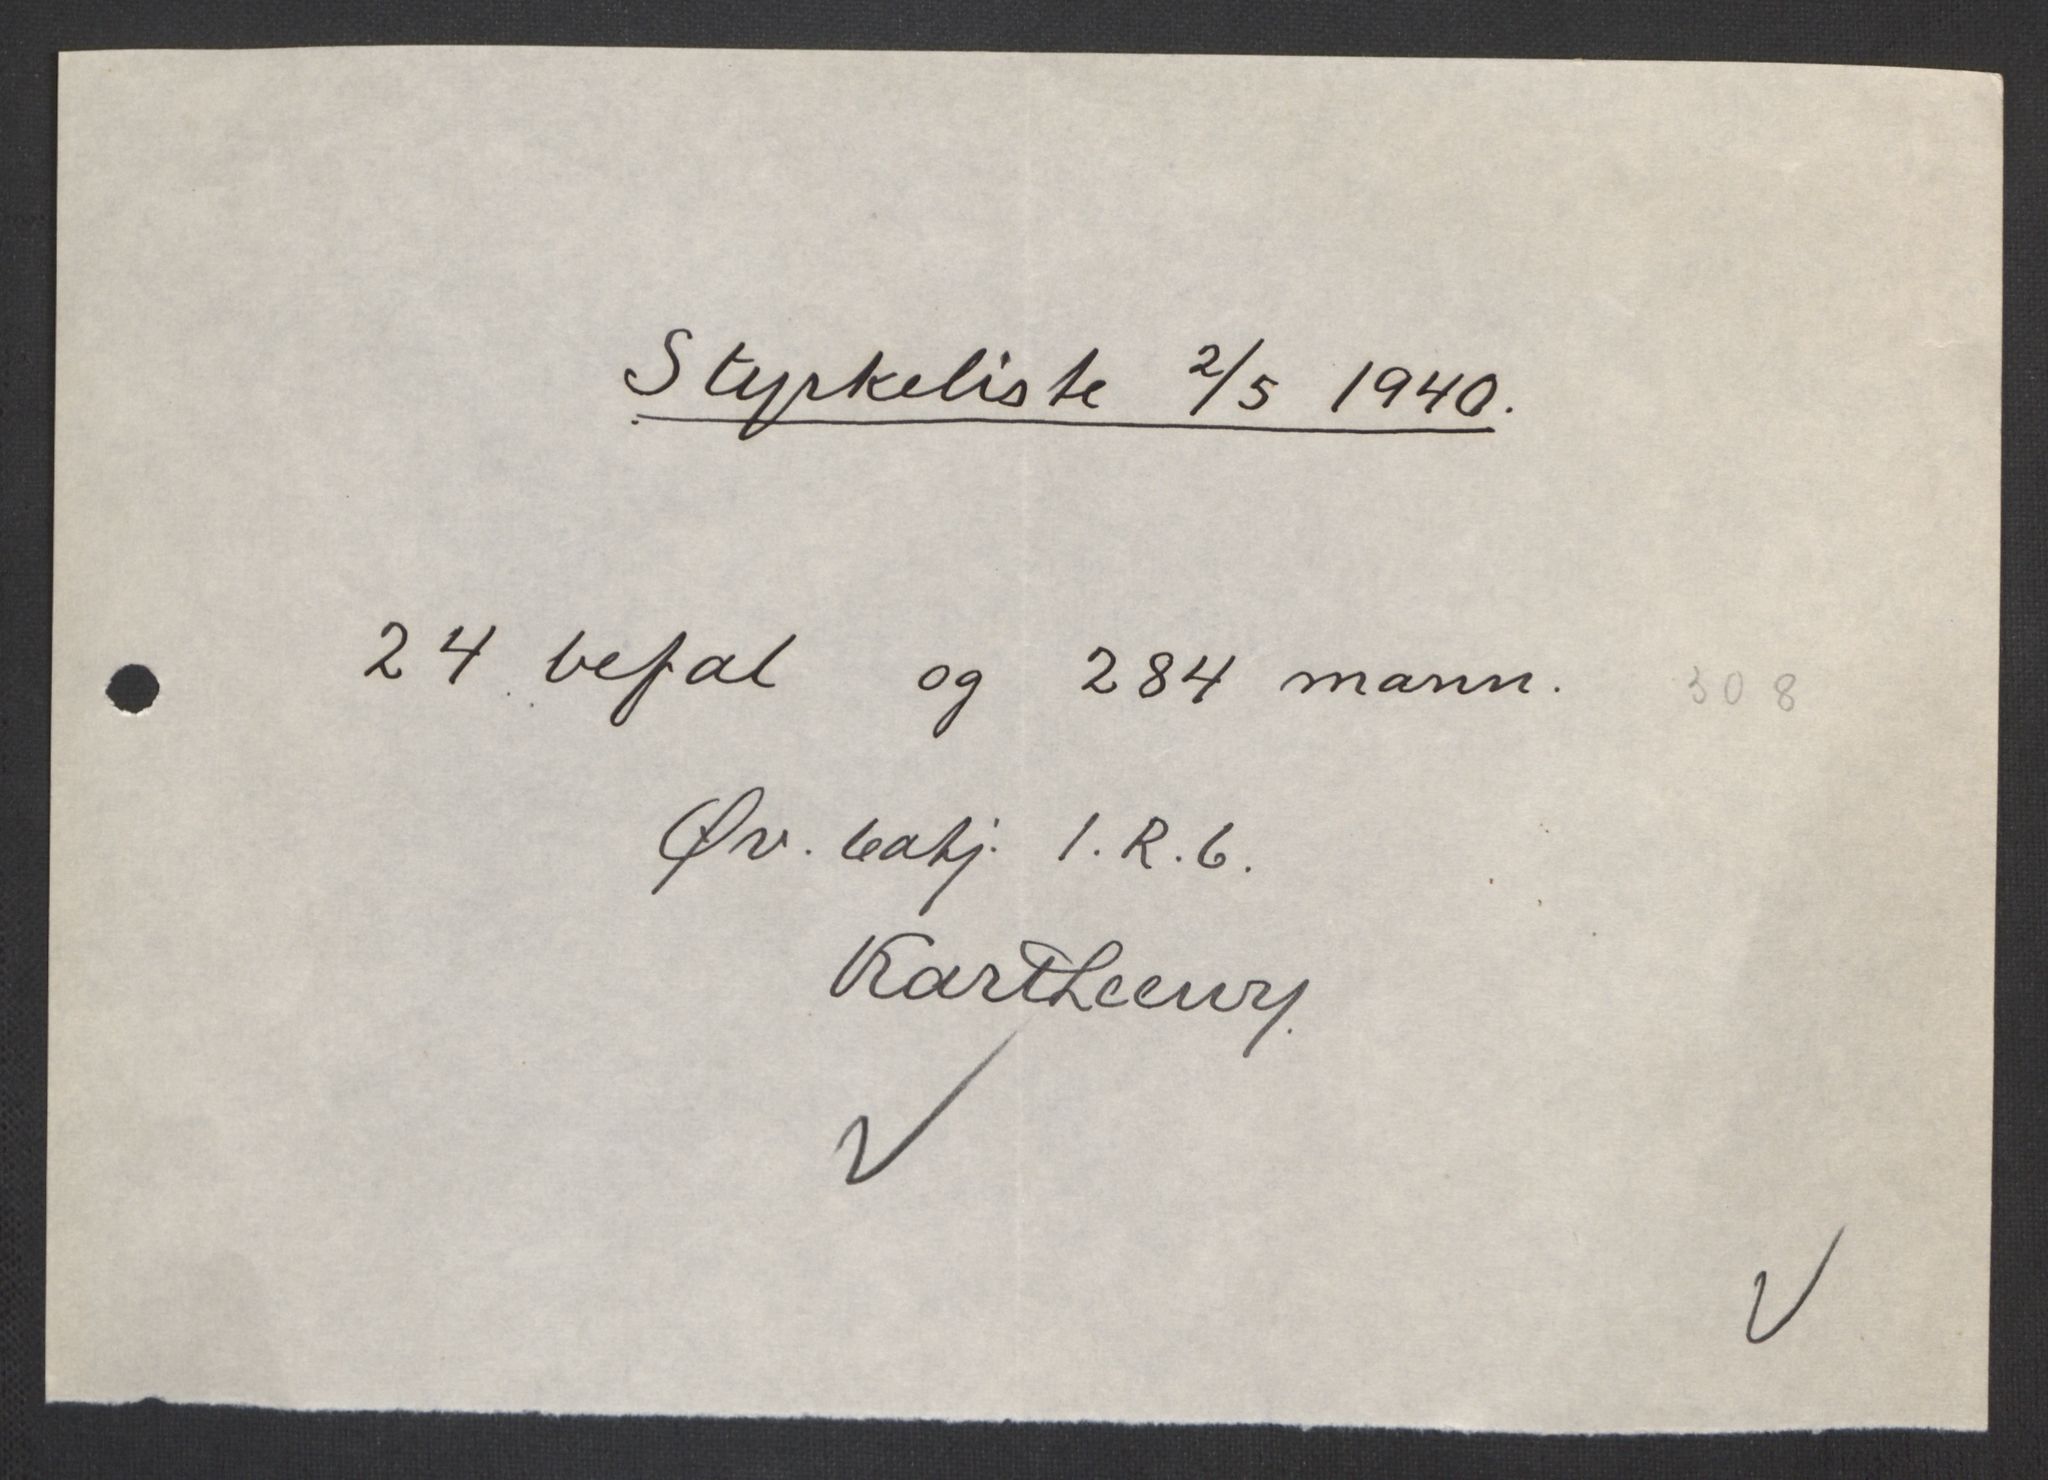 Styrkeliste 2/5 1940.
24 befal og 284 mann. 308
Øv. batj. I.R.6.